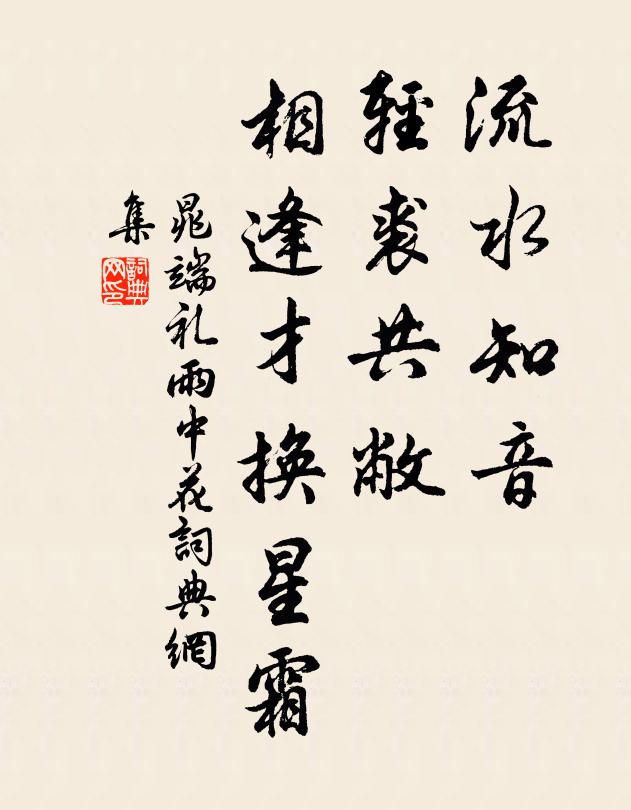 流水知音
輕裘共敝
相逢才換星霜
晁端礼雨中花詞典網
集
詞典
网印